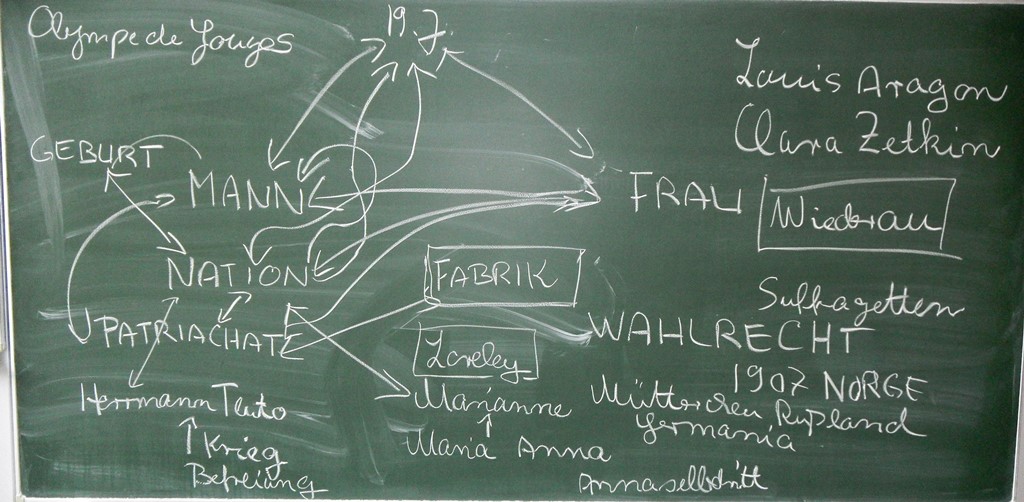 Olympe de Gouges
19.7.
Louis Aragon
Clara Zetkin
GEBURT
MANN
FRAU
Wiederau
NATION
FABRIK
Suffragetten
PATRIACHAT
WAHLRECHT
Loreley
1907 NORGE
Herrmann Teuto
Marianne
Mütterchen Rußland
Germania
Krieg
Maria Anna
Befreiung
Annaselbdritt